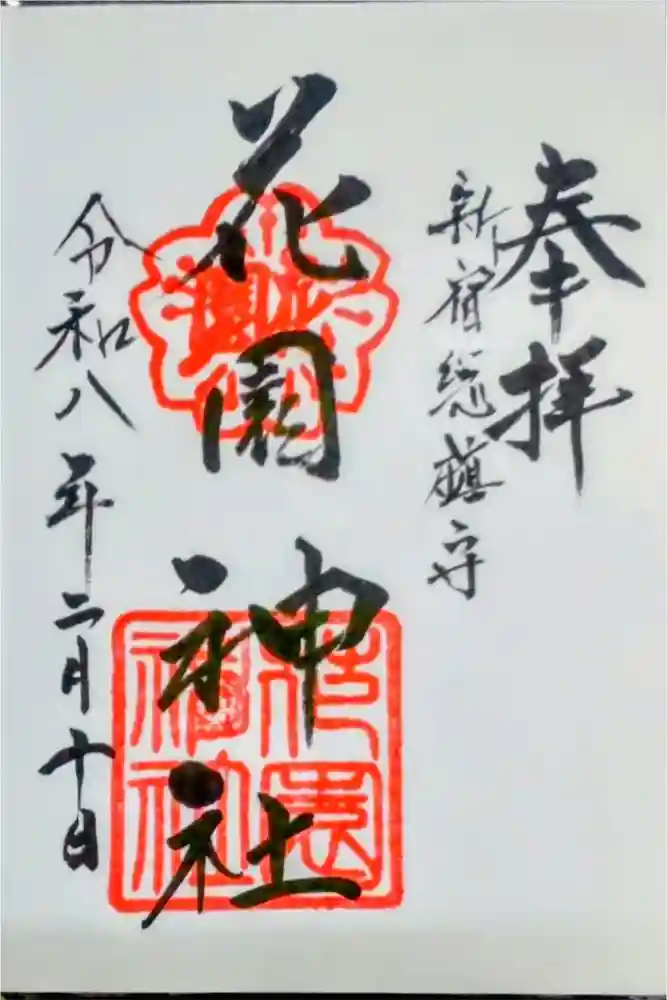 奉拝
新宿総鎮守
花園神社
令和八年二月十日
花園神社